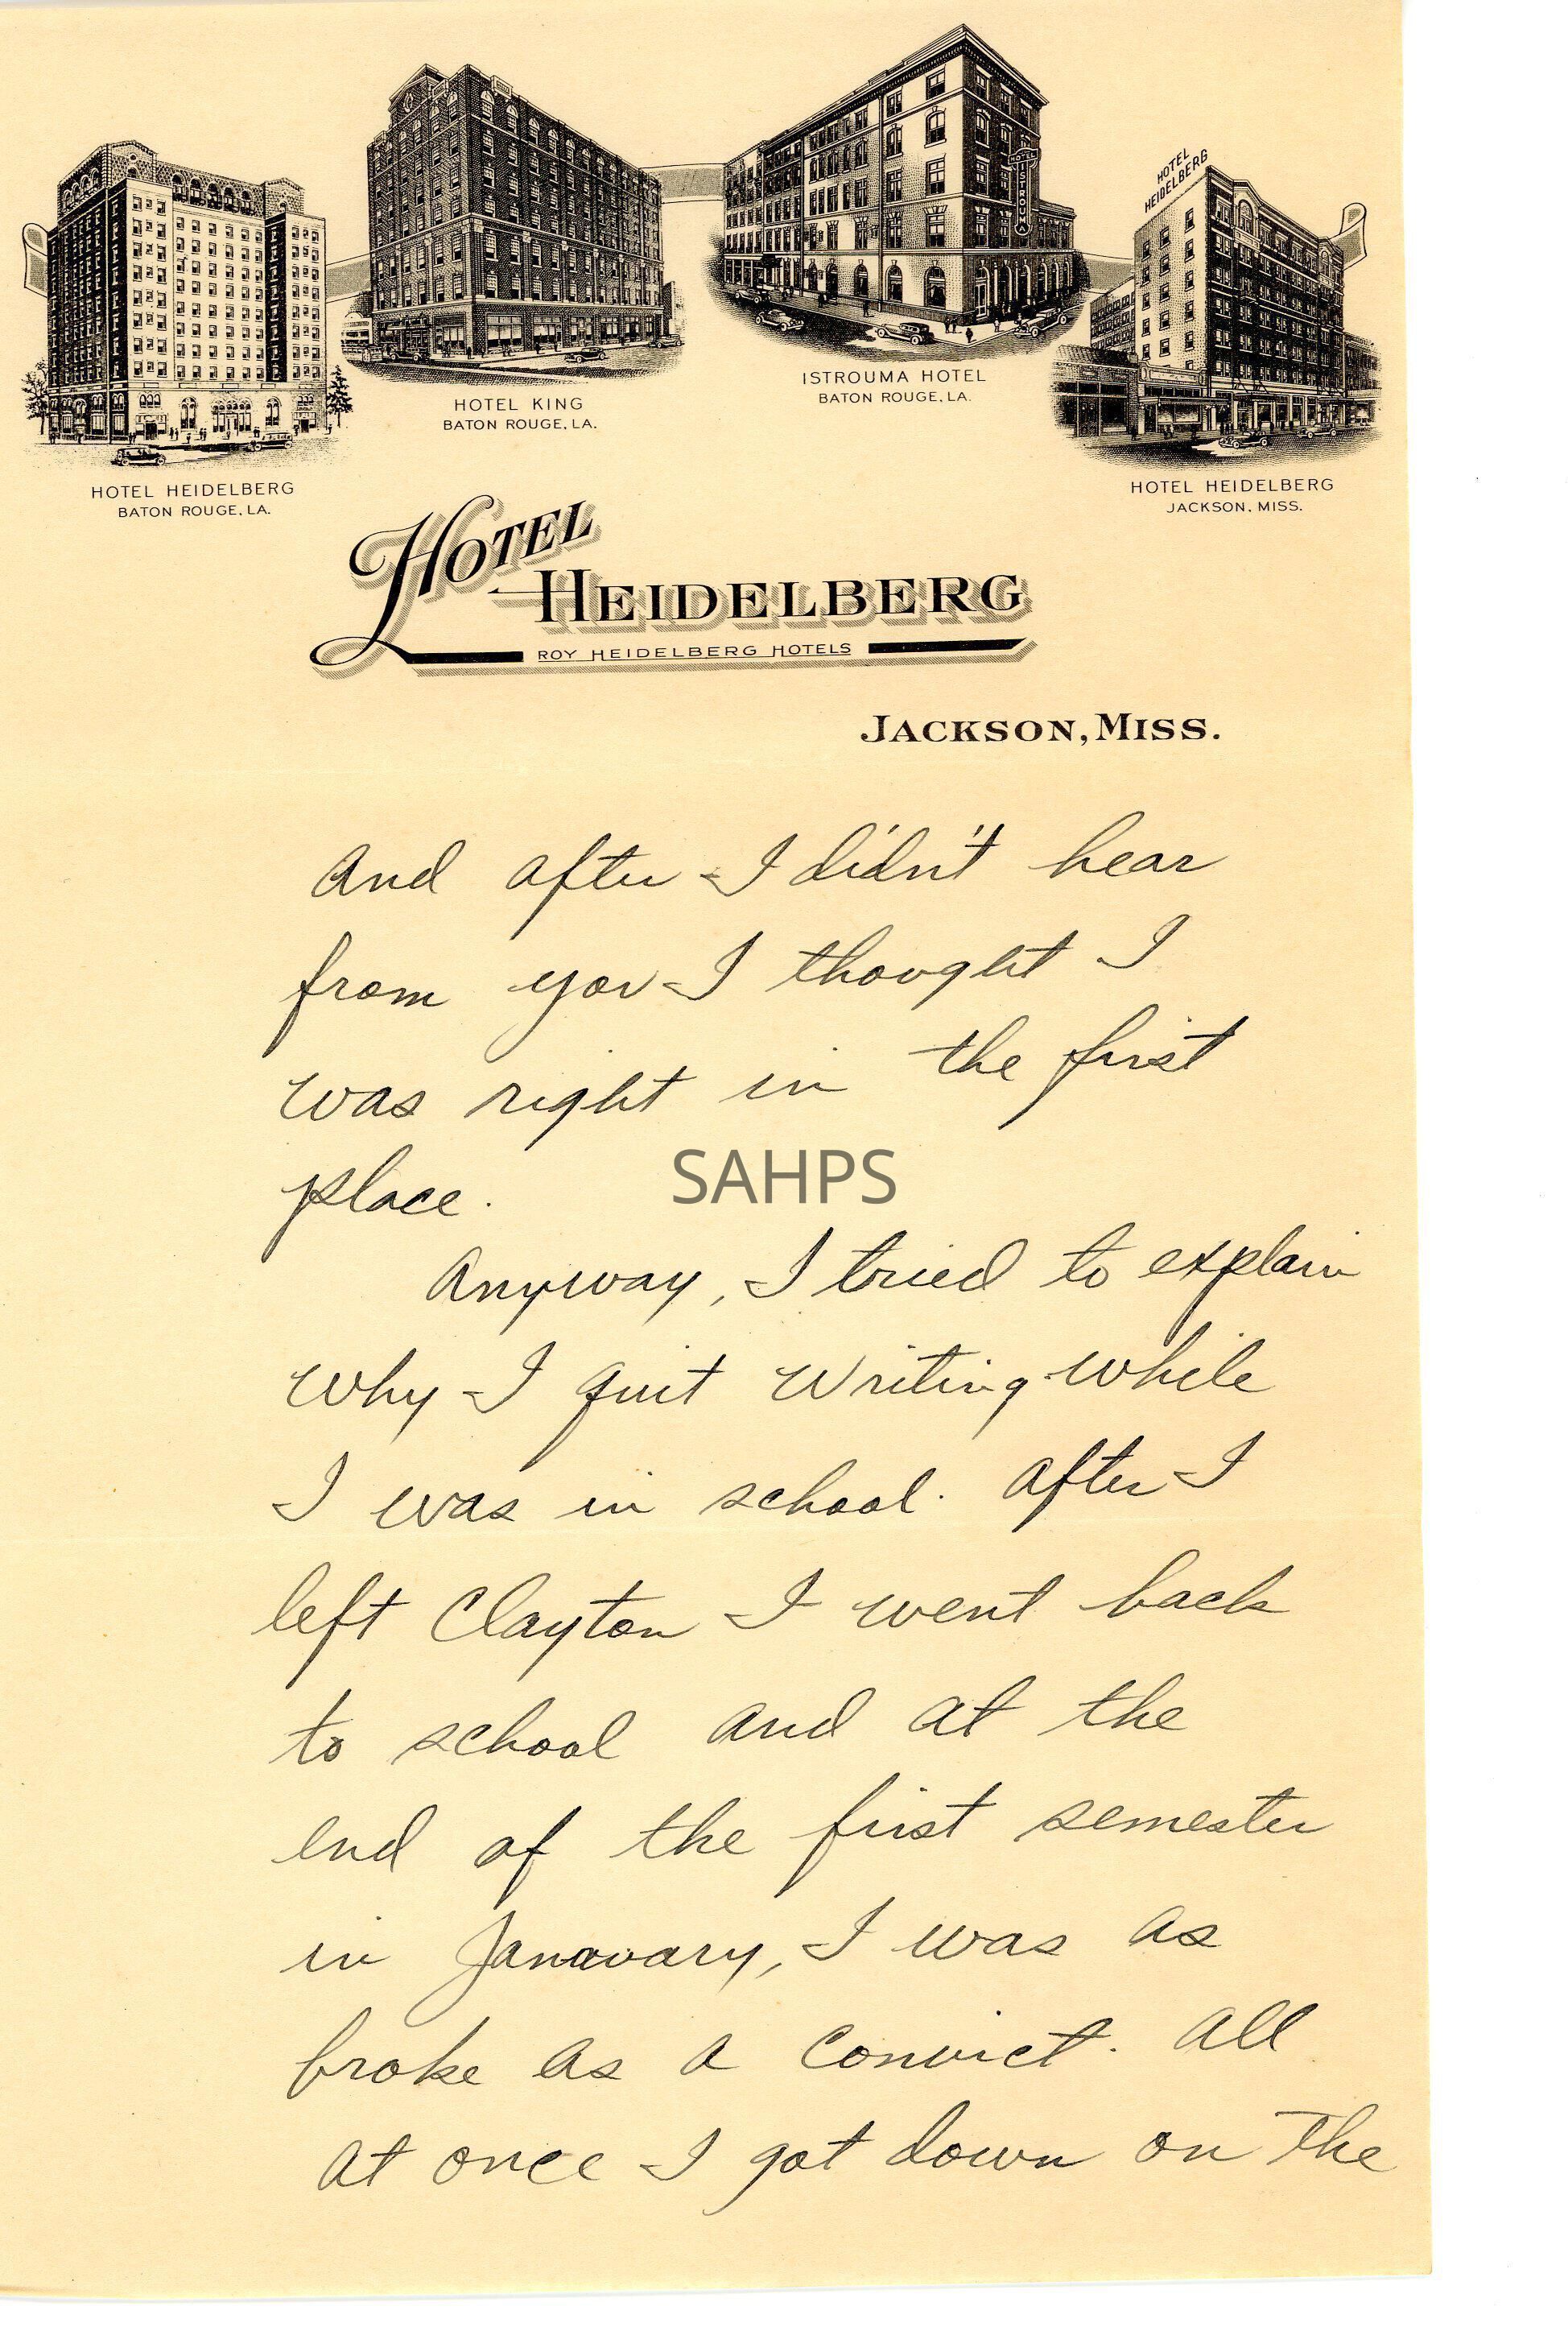 HOTEL HEIDELBERG
HOTEL
ISTROUMA
HOTEL KING
BATON ROUGE, LA.
ISTROUMA HOTEL
BATON ROUGE, LA.
HOTEL HEIDELBERG
BATON ROUGE, LA.
HOTEL HEIDELBERG
JACKSON, MISS.
HOTEL
HEIDELBERG
ROY HEIDELBERG HOTELS
JACKSON, MISS.
And after I didn't hear
from you I thought I
was right in the first
place.
SAHPS
Anyway, I tried to explain
why I quit writing while
I was in school. After I
left Clayton I went back
to school and at the
end of the first semester
in Janauary, I was as
broke as a convict. All
at once I got down on the